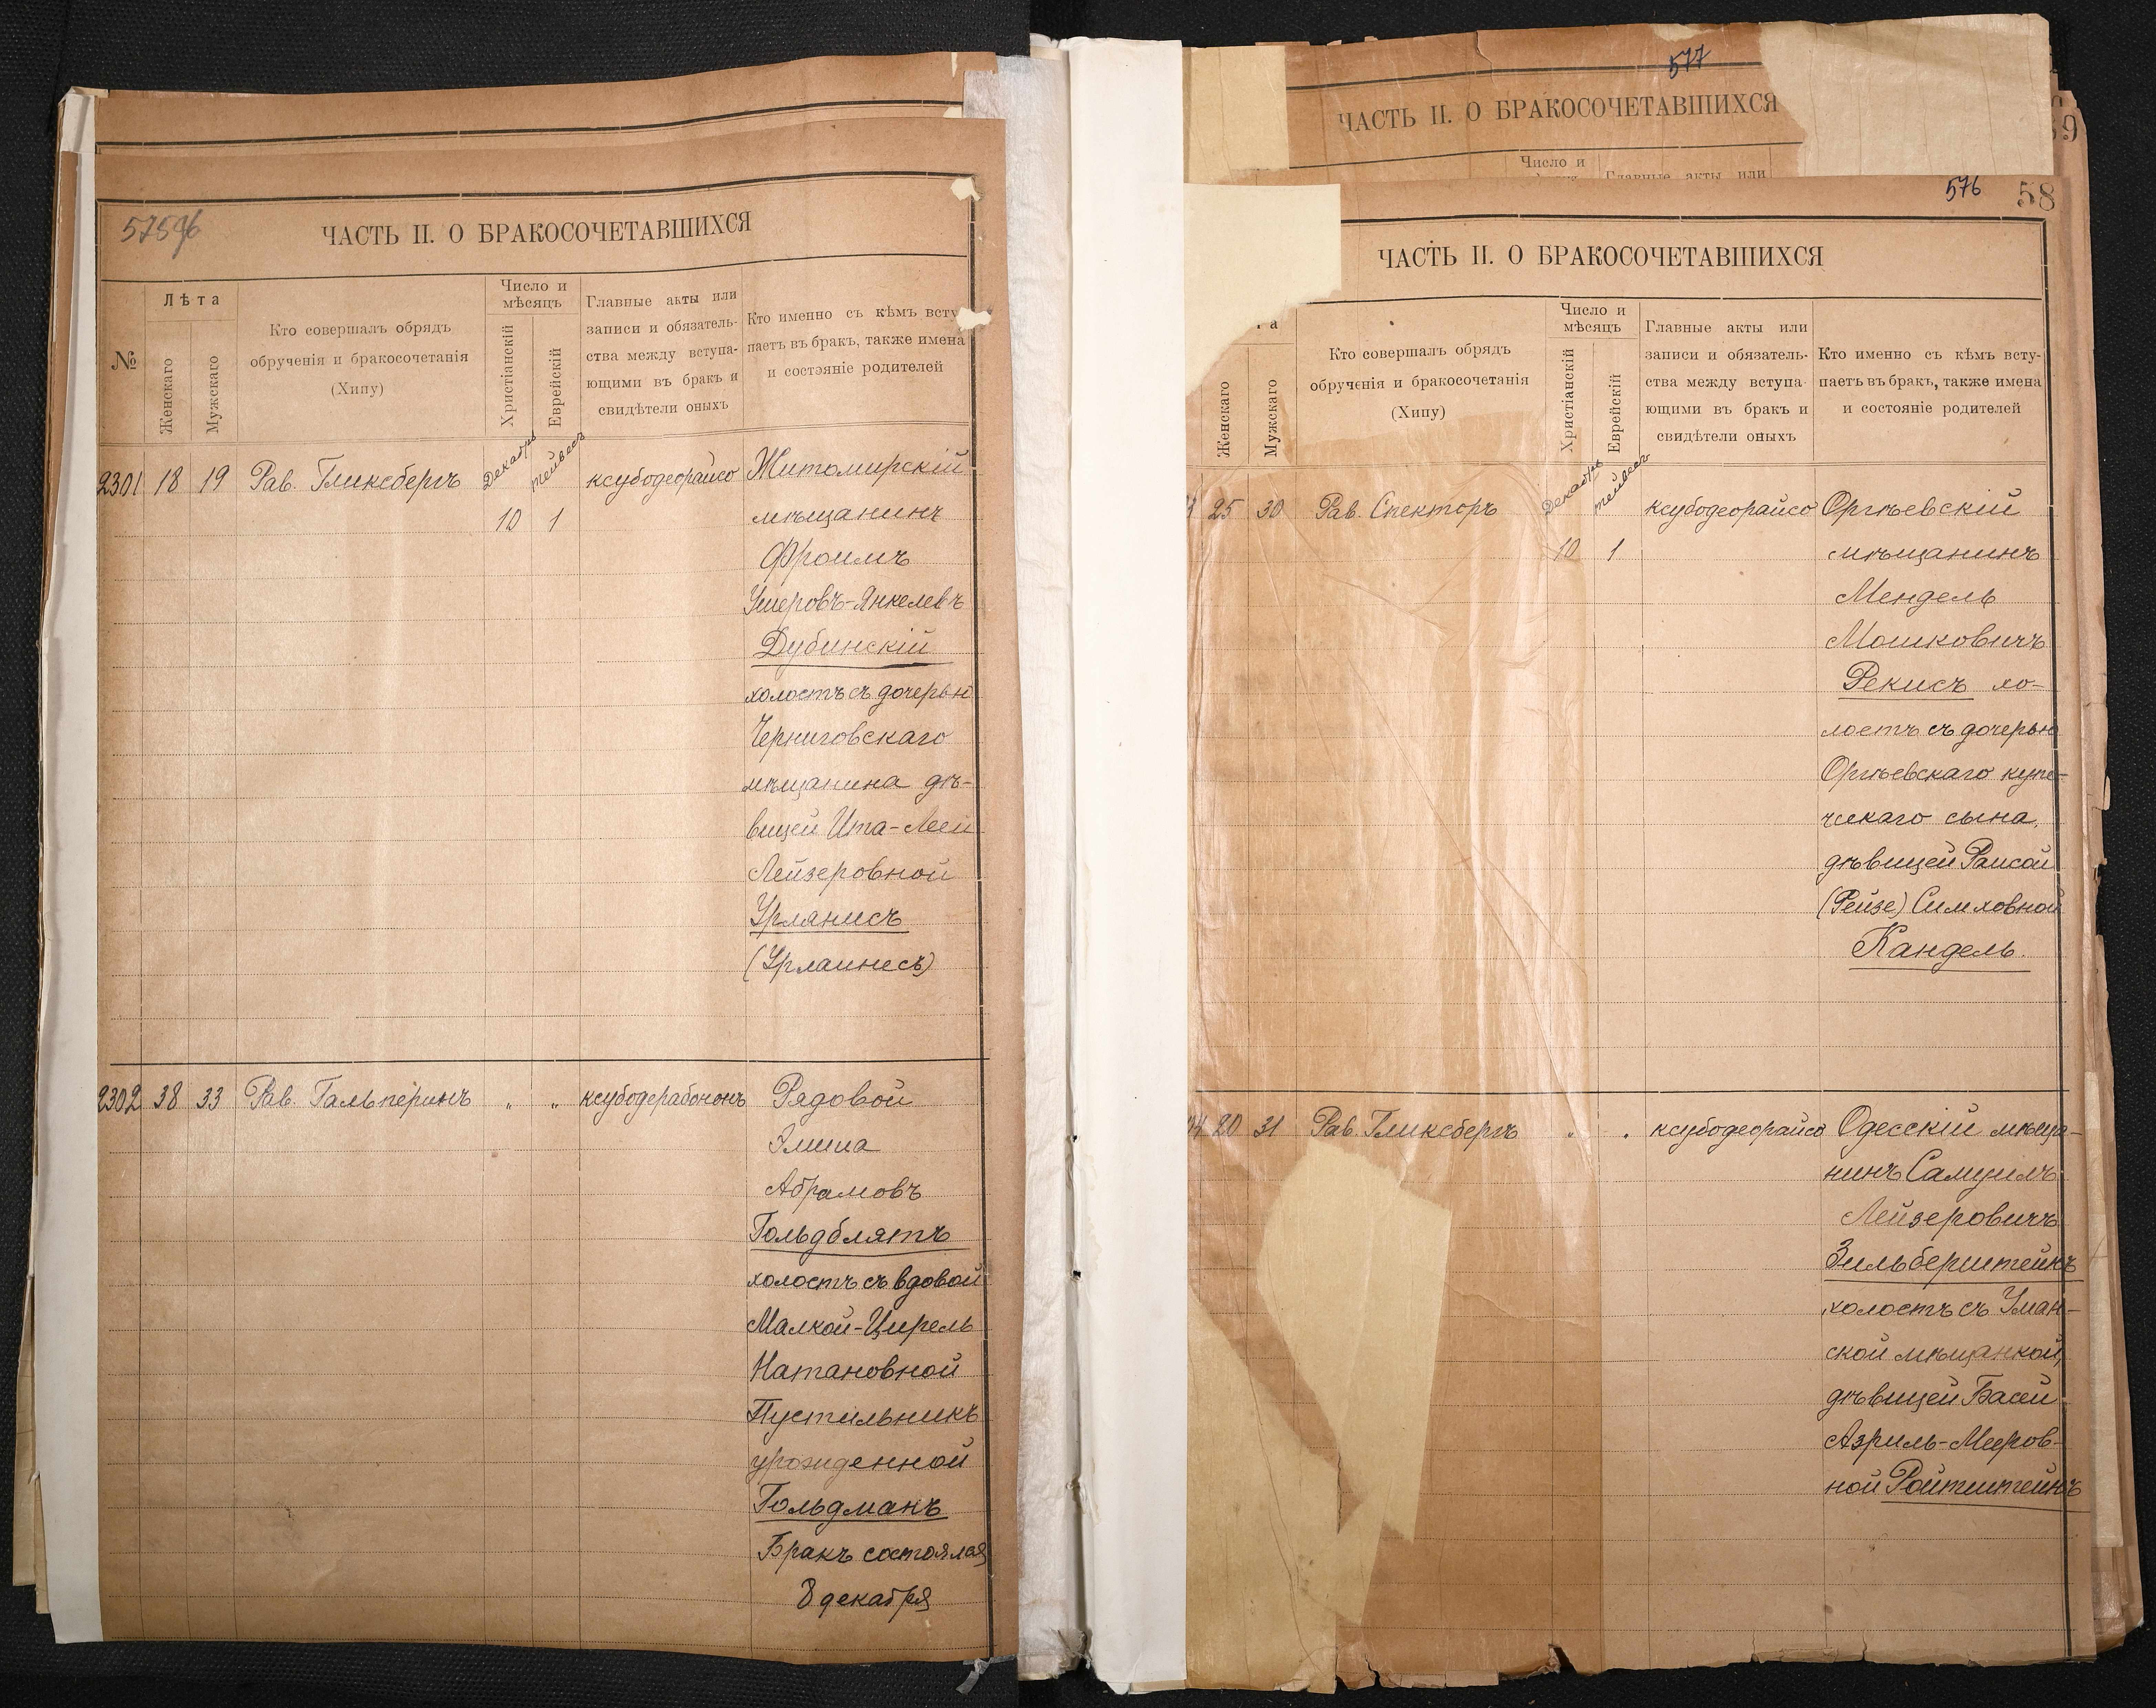 577
ЧАСТЬ II. О БРАКОСОЧЕТАВШИХСЯ
Число и
Главные акты или
ЧАСТЬ II. О БРАКОСОЧЕТАВШИХСЯ
№
Лѣта
Женскаго
Мужскаго
Кто совершалъ обрядъ
обрученія и бракосочетанія
(Хипу)
Число и
мѣсяцъ
Христіанскій
Еврейскій
Главные акты или
записи и обязатель-
ства между вступа-
ющими въ бракъ и
свидѣтели оныхъ
Кто именно съ кѣмъ всту
паетъ въ бракъ, также имена
и состояніе родителей
2301 18 19 Рав. Гликсбергъ Декабрь тейвесъ ксубодеорайсо Житомирскій
10 1 мѣщанинъ
Фроимъ
Ушеровъ-Янкелевъ
Дубинскій
холостъ съ дочерью
Черниговскаго
мѣщанина дѣ-
вицей Ита-Леей
Лейзеровной
Урлянисъ
(Урлаинесъ)
2302 38 33 Рав. Гальперинъ " " ксубодерабононъ Рядовой
Элиша
Абрамовъ
Гольдблятъ
холостъ съ вдовой
Малкой-Цирель
Натановной
Пустильникъ
урожденной
Гольдманъ
Бракъ состоялся
8 декабря
576 58
ЧАСТЬ II. О БРАКОСОЧЕТАВШИХСЯ
Женскаго
Мужскаго
Кто совершалъ обрядъ
обрученія и бракосочетанія
(Хипу)
Число и
мѣсяцъ
Христіанскій
Еврейскій
Главные акты или
записи и обязатель-
ства между вступа-
ющими въ бракъ и
свидѣтели оныхъ
Кто именно съ кѣмъ всту-
паетъ въ бракъ, также имена
и состояніе родителей
25 30 Рав. Спекторъ Декабрь тейвесъ ксубодеорайсо Оргѣевскій
10 1 мѣщанинъ
Мендель
Мошковичъ
Рекисъ хо-
лостъ съ дочерью
Оргѣевскаго купе-
ческаго сына,
дѣвицей Раисой
(Рейзе) Симховной
Кандель.
04 20 31 Рав. Гликсбергъ " " ксубодеорайсо Одесскій мѣща-
нинъ Самуилъ
Лейзеровичъ
Зильберштейнъ
холостъ съ Уман-
ской мѣщанкой,
дѣвицей Басей
Азриль-Мееров-
ной Ройтштейнъ